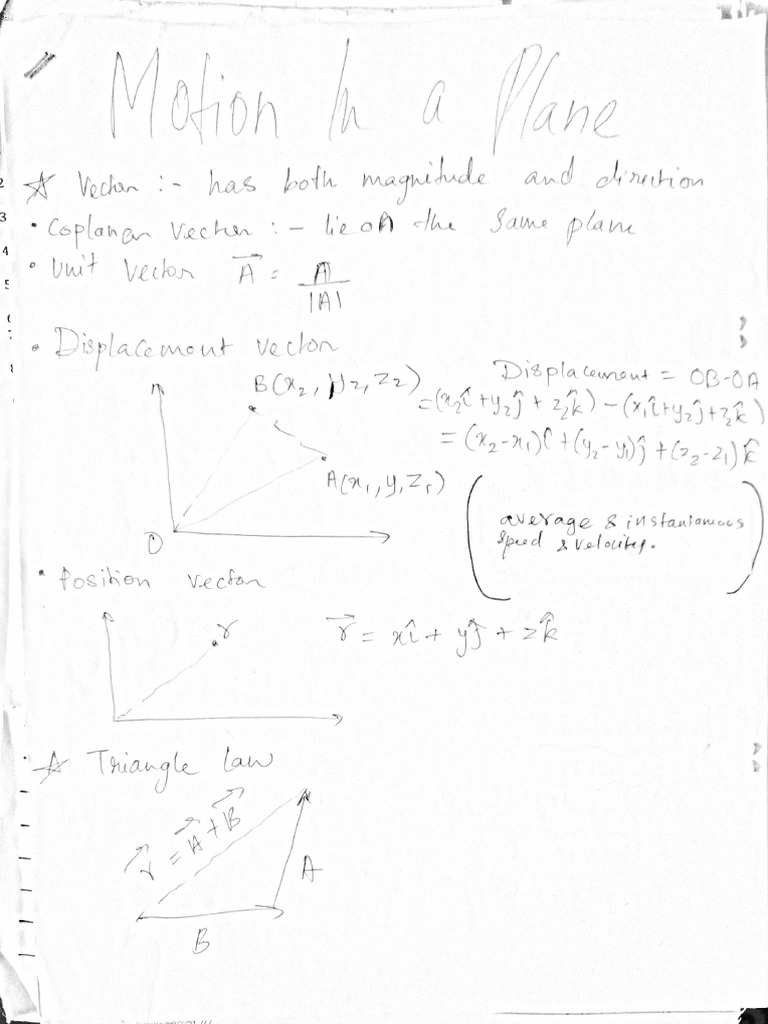 Motion In a Plane
☆ Vector :- has both magnitude and direction
• Coplanar vector :- lie on the same plane
• Unit vector A⃗ = A / |A|
• Displacement vector
Displacement = OB-OA
= (x₂î + y₂ĵ + z₂k̂) - (x₁î + y₂ĵ + z₂k̂)
= (x₂-x₁)î + (y₂-y₁)ĵ + (z₂-z₁)k̂
B(x₂, y₂, z₂)
A(x₁, y, z₁)
O
(average & instantaneous
speed & velocity.)
• Position vector
r
r⃗ = xî + yĵ + zk̂
☆ Triangle law
r⃗ = A⃗ + B⃗
A
B